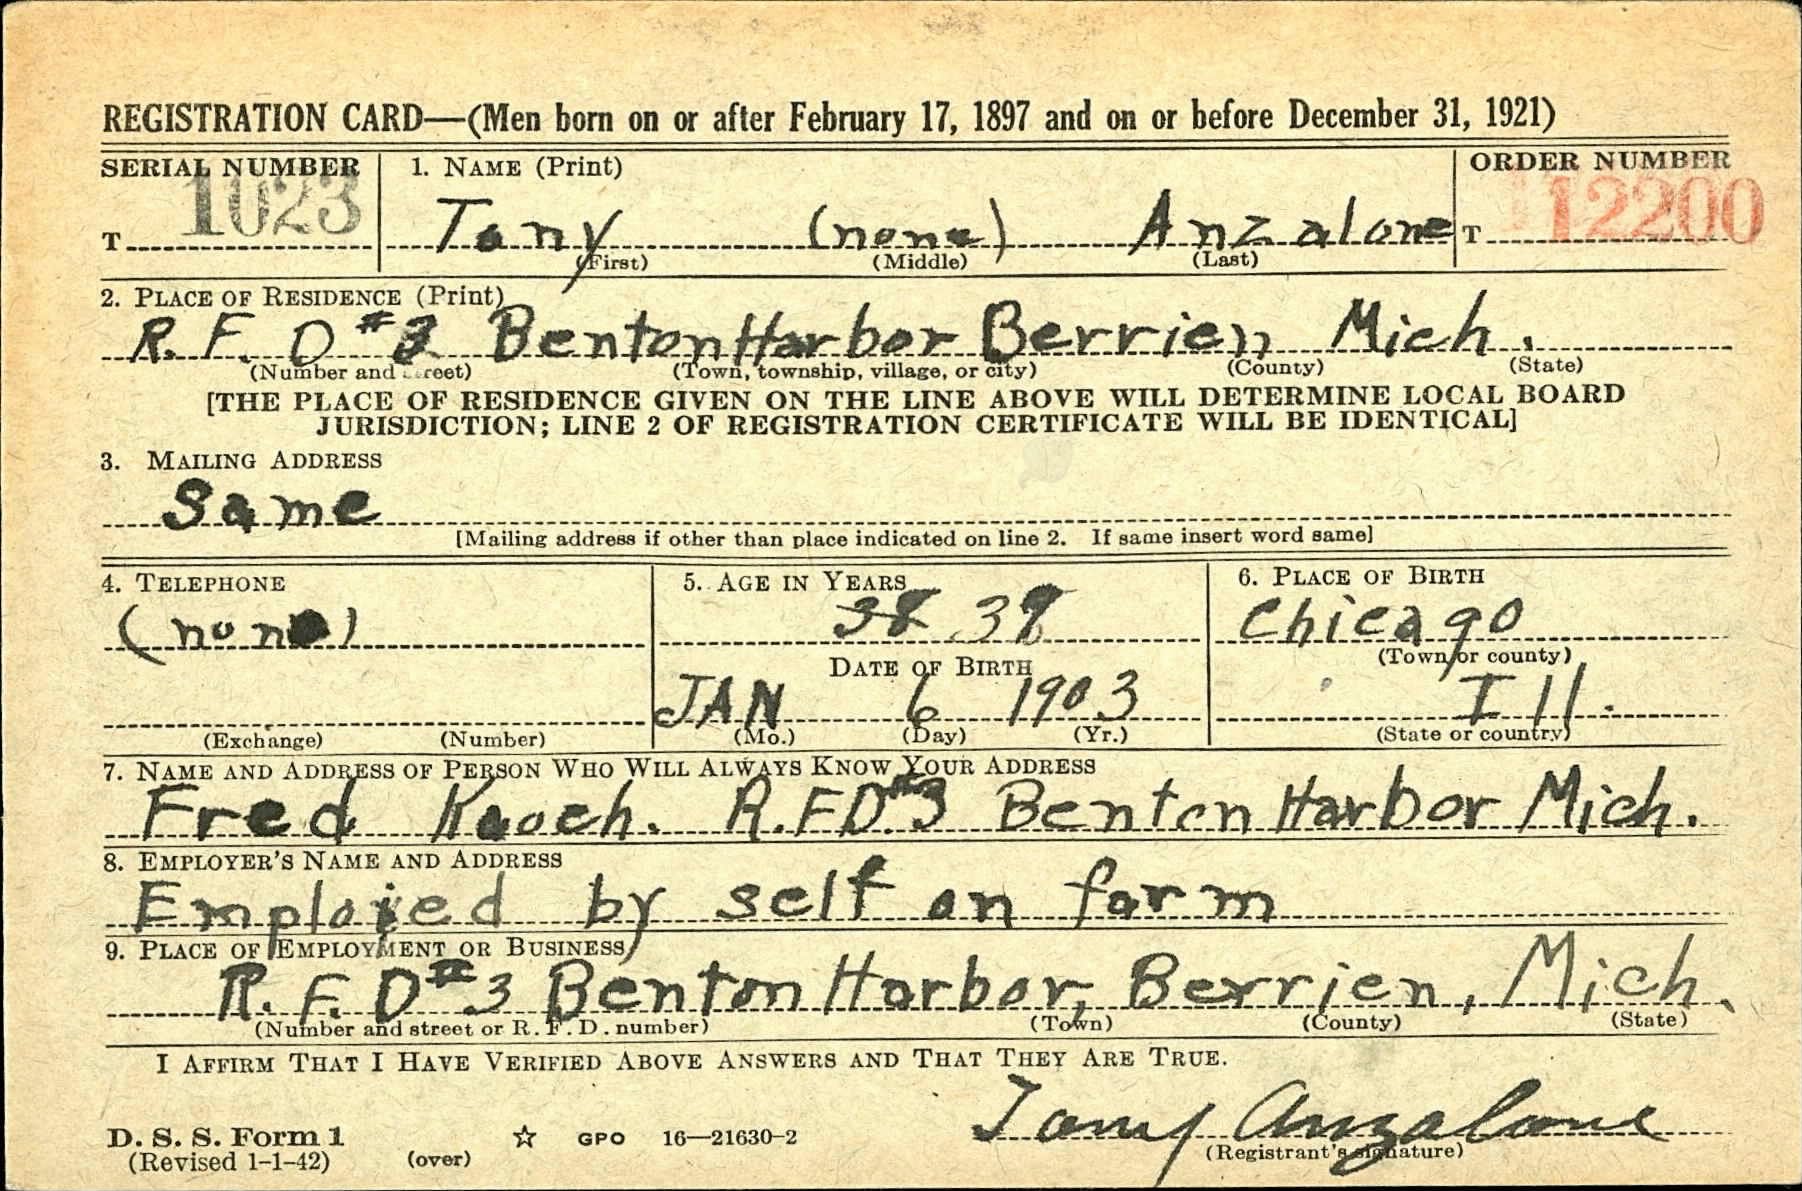 REGISTRATION CARD—(Men born on or after February 17, 1897 and on or before December 31, 1921)
SERIAL NUMBER 1. NAME (Print) ORDER NUMBER
T 1023 Tony (none) Anzalone T 12200
(First) (Middle) (Last)
2. PLACE OF RESIDENCE (Print)
R. F. D #3 Benton Harbor Berrien Mich.
(Number and street) (Town, township, village, or city) (County) (State)
[THE PLACE OF RESIDENCE GIVEN ON THE LINE ABOVE WILL DETERMINE LOCAL BOARD
JURISDICTION; LINE 2 OF REGISTRATION CERTIFICATE WILL BE IDENTICAL]
3. MAILING ADDRESS
Same
[Mailing address if other than place indicated on line 2. If same insert word same]
4. TELEPHONE 5. AGE IN YEARS 6. PLACE OF BIRTH
(none) 38 39 Chicago
DATE OF BIRTH (Town or county)
JAN 6 1903 Ill.
(Exchange) (Number) (Mo.) (Day) (Yr.) (State or country)
7. NAME AND ADDRESS OF PERSON WHO WILL ALWAYS KNOW YOUR ADDRESS
Fred R.F.D.#3 Benton Harbor Mich.
8. EMPLOYER'S NAME AND ADDRESS
Employed by self on farm
9. PLACE OF EMPLOYMENT OR BUSINESS
R. F. D #3 Benton Harbor, Berrien, Mich.
(Number and street or R. F. D. number) (Town) (County) (State)
I AFFIRM THAT I HAVE VERIFIED ABOVE ANSWERS AND THAT THEY ARE TRUE.
Tony Anzalone
D. S. S. Form 1 ☆ GPO 16—21630-2 (Registrant's signature)
(Revised 1-1-42) (over)